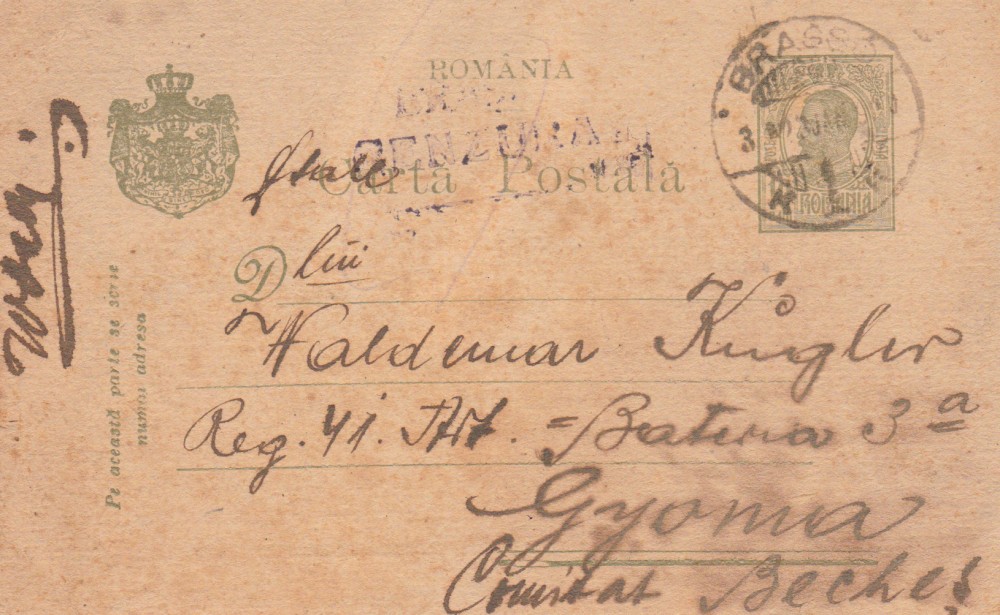 ROMÂNIA
CENZURAT
Carta Postală
BRASSÓ
ROMANIA
Dlui
Waldemar Kügler
Reg. 41. Art. = Bateria 3a
Gyoma
Comitat Beches
Pe această parte se scrie
numai adresa